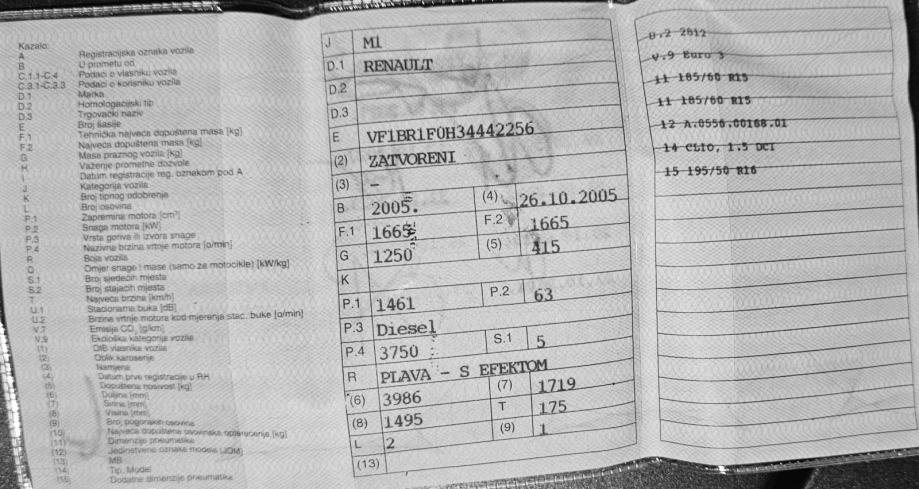 Kazalo:
A Registracijska oznaka vozila
B U prometu od
C.1.1-C.4 Podaci o vlasniku vozila
C.3.1-C.3.3 Podaci o korisniku vozila
D.1 Marka
D.2 Homologacijski tip
D.3 Trgovački naziv
E Broj šasije
F.1 Tehnička najveća dopuštena masa [kg]
F.2 Najveća dopuštena masa [kg]
G Masa praznog vozila [kg]
H Važenje prometne dozvole
I Datum registracije reg. oznakom pod A
J Kategorija vozila
K Broj tipnog odobrenja
L Broj osovina
P.1 Zapremina motora [cm³]
P.2 Snaga motora [kW]
P.3 Vrsta goriva ili izvora snage
P.4 Nazivna brzina vrtnje motora [o/min]
R Boja vozila
Q Omjer snage i mase (samo za motocikle) [kW/kg]
S.1 Broj sjedećih mjesta
S.2 Broj stajaćih mjesta
T Najveća brzina [km/h]
U.1 Stacionarna buka [dB]
U.2 Brzina vrtnje motora kod mjerenja stac. buke [o/min]
V.7 Emisija CO₂ [g/km]
V.9 Ekološka kategorija vozila
(1) OIB vlasnika vozila
(2) Oblik karoserije
(3) Namjena
(4) Datum prve registracije u RH
(5) Dopuštena nosivost [kg]
(6) Duljina [mm]
(7) Širina [mm]
(8) Visina [mm]
(9) Broj pogonskih osovina
(10) Najveća dopuštena osovinska opterećenja [kg]
(11) Dimenzije pneumatika
(12) Jedinstvena oznaka modela (JOM)
(13) MB
(14) Tip, Model
(15) Dodatne dimenzije pneumatika
J M1
D.1 RENAULT
D.2
D.3
E VF1BR1F0H34442256
(2) ZATVORENI
(3) -
B 2005. (4) 26.10.2005
F.1 1665 F.2 1665
G 1250 (5) 415
K
P.1 1461 P.2 63
P.3 Diesel
P.4 3750 S.1 5
R PLAVA - S EFEKTOM
(6) 3986 (7) 1719
(8) 1495 T 175
L 2 (9) 1
(13)
U.2 2812
V.9 Euro 3
11 185/60 R15
11 185/60 R15
12 A.0556.00168.01
14 CLIO, 1.5 DCI
15 195/50 R16